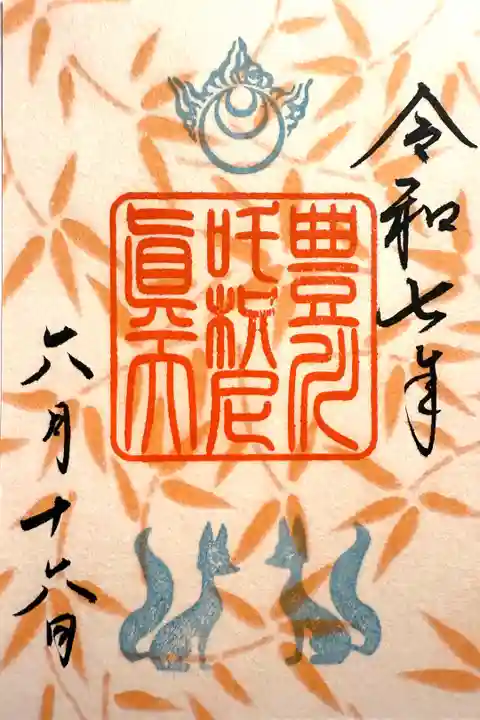 令和七年
豊川
吒枳尼
眞天
六月十六日